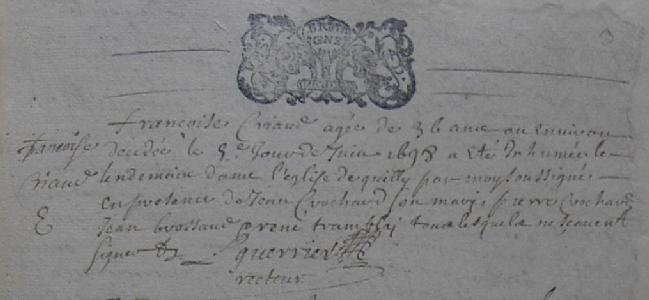 BRETA
GNE
Francoise Criaud agée de 36 ans ou environ
Francoise decedée le 5e Jour de Juin 1698 a Eté Inhumée le
Criaud lendemain dans l'eglise de quilly par moy soussigné
En presence de Jean Crochard son mary, pierre Crochard
Jean brossaud, rené tous lesquels ne scavent
signer
guerrier
recteur